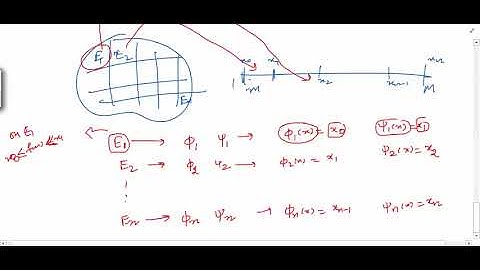 E₁ E₂
x₀ x₁ x₂ xₙ₋₁ xₙ
-M M
Eₙ
on E₁
E₁ → ϕ₁ ψ₁ → ϕ₁(x) = x₀ ψ₁(x) = x₁
E₂ → ϕ₂ ψ₂ → ϕ₂(x) = x₁ ψ₂(x) = x₂
⋮
Eₙ → ϕₙ ψₙ → ϕₙ(x) = xₙ₋₁ ψₙ(x) = xₙ